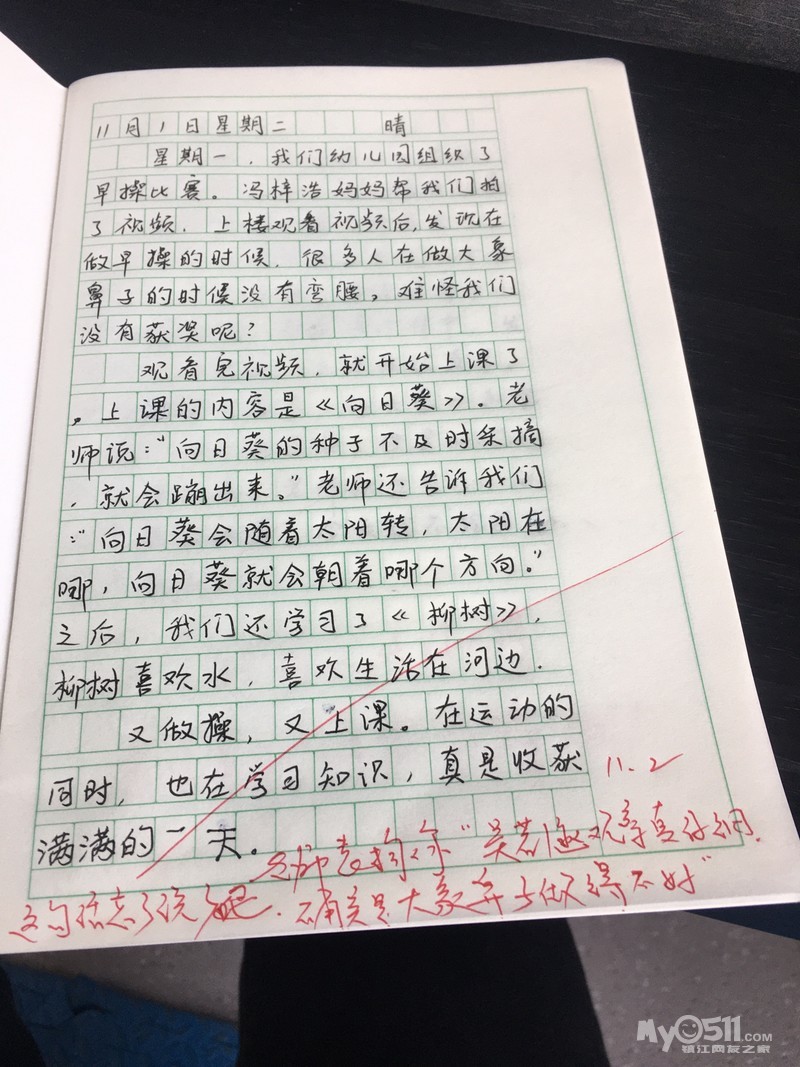 11月1日星期二 晴
星期一，我们幼儿园组织了
早操比赛。冯梓浩妈妈帮我们拍
了视频，上楼观看视频后，发现在
做早操的时候，很多人在做大象
鼻子的时候没有弯腰，难怪我们
没有获奖呢？
观看完视频，就开始上课了
。上课的内容是《向日葵》。老
师说：“向日葵的种子不及时采摘
，就会蹦出来。”老师还告诉我们
：“向日葵会随着太阳转，太阳在
哪，向日葵就会朝着哪个方向。”
之后，我们还学习了《柳树》，
柳树喜欢水，喜欢生活在河边．
又做操，又上课。在运动的
同时，也在学习知识，真是收获
满满的一天。
11.2
老师表扬你“吴若 观察真仔细．
这句话忘了说 吧．不用 是大象鼻子做得不好”
My0511.COM
镇江网友之家